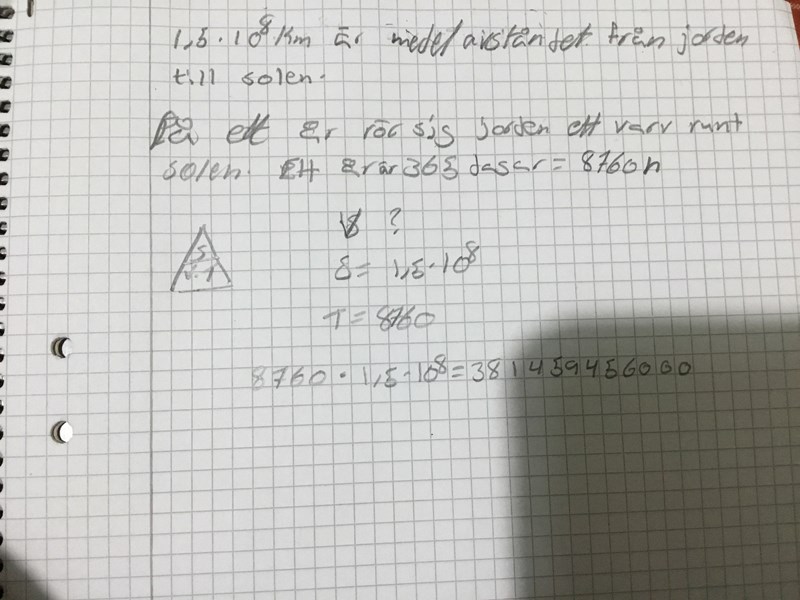 1,5 · 10⁸ km är medelavståndet från jorden
till solen.
På ett år rör sig jorden ett varv runt
solen. Ett år är 365 dagar = 8760 h
V ?
S
V·T
S = 1,5 · 10⁸
T = 8760
8760 · 1,5 · 10⁸ = 381459456000